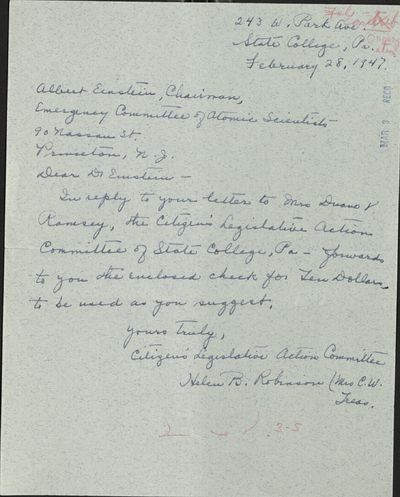 243 W. Park Ave.
State College, Pa.
February 28, 1947.
MAR 3 RECD
Albert Einstein, Chairman,
Emergency Committee of Atomic Scientists
90 Nassau St
Princeton, N. J.
Dear Dr Einstein –
In reply to your letter to Mrs Duane
Ramsey, the Citizen's Legislative Action
Committee of State College, Pa – forwards
to you the enclosed check for Ten Dollars,
to be used as you suggest.
Yours truly,
Citizen's Legislative Action Committee
Helen B. Robinson (Mrs C.W.
Treas.
3-5